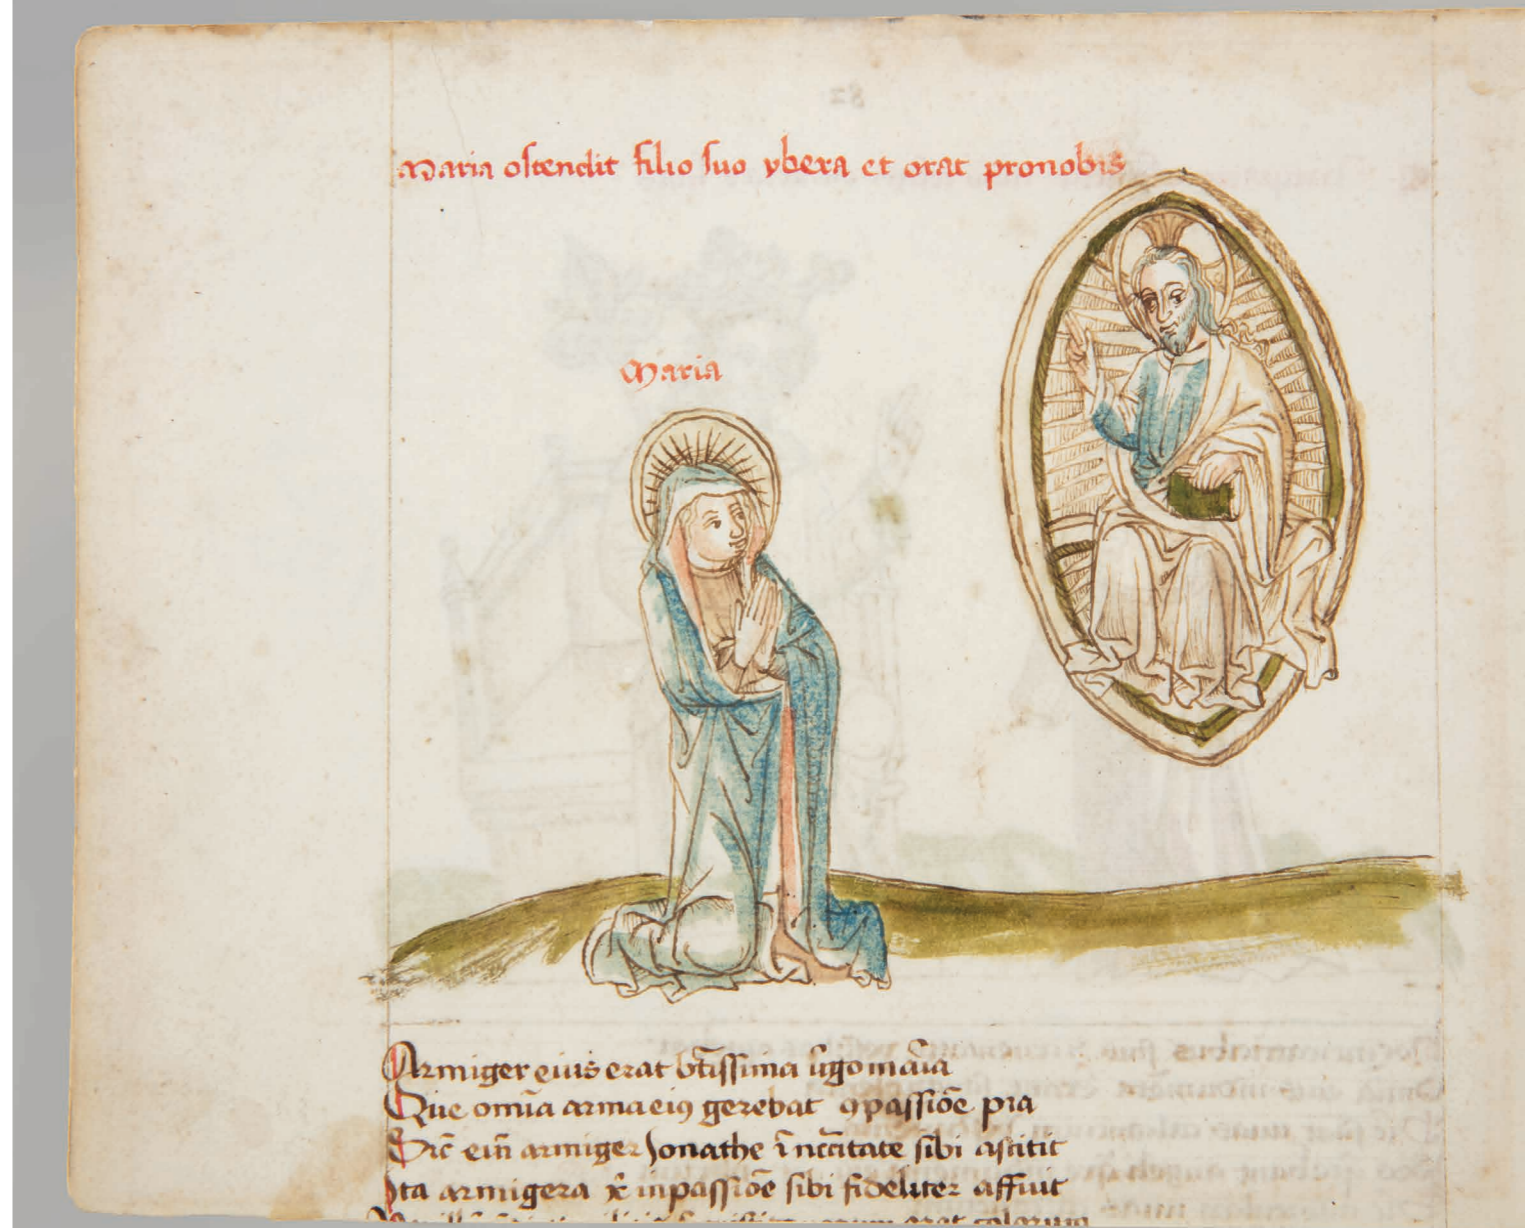 Maria ostendit filio suo ybera et orat pronobis
Maria
Armiger eius erat bt̄issima ūgo maīa
Que om̄ia arma eiꝰ gerebat ꝯpassiōe pia
Sic̄ em̄ armiger Jonathe ī nccītate sibi astitit
Ita armigera xͥ in passiōe sibi fideliter affuit
erat